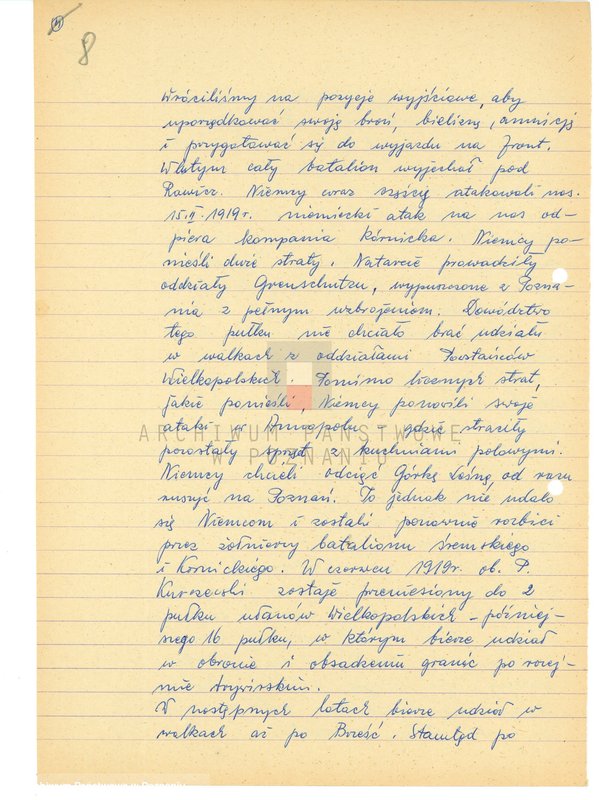 8
Wróciliśmy na pozycje wyjściowe, aby
uporządkować swoją broń, bieliznę, amunicję
i przygotować się do wyjazdu na front.
W lutym cały batalion wyjechał pod
Rawicz. Niemcy coraz częściej atakowali nas.
15.II.1919r. niemiecki atak na nas od-
piera kompania kórnicka. Niemcy po-
nieśli duże straty. Natarcie prowadziły
oddziały Grenschutzu, wypuszczone z Pozna-
nia z pełnym uzbrojeniem. Dowództwo
tego pułku nie chciało brać udziału
w walkach z oddziałami Powstańców
Wielkopolskich. Pomimo licznych strat,
jakie ponieśli, Niemcy ponowili swoje
ataki w Annopolu gdzie straciły
pozostały sprzęt z kuchniami polowymi.
Niemcy chcieli odciąć Górkę Leśną, od razu
ruszyć na Poznań. To jednak nie udało
się Niemcom i zostali ponownie rozbici
przez żołnierzy batalionu śremskiego
i Kórnickiego. W czerwcu 1919r. ob. P.
Kurczewski zostaje przeniesiony do 2
pułku ułanów Wielkopolskich - później-
szego 16 pułku, w którym bierze udział
w obronie i obsadzeniu granic po rozej-
mie
W następnych latach bierze udział w
walkach aż po Brześć. Stamtąd po
ARCHIWUM PAŃSTWOWE
W POZNANIU
Archiwum Państwowe w Poznaniu